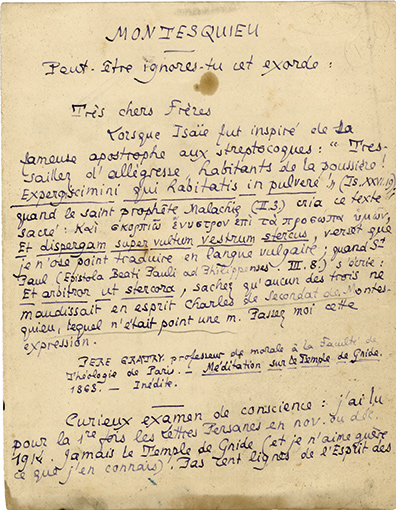 MONTESQUIEU
Peut-Etre ignores-tu cet exorde :
Très chers Frères
Lorsque Isaïe fut inspiré de sa
fameuse apostrophe aux streptocoques : " Tres-
saillez d'allégresse, habitants de la poussière !
Expergiscimini qui habitatis in pulvere " (Is. XXVI. 19)
quand le saint prophète Malachie (II.3.) cria ce texte
sacré : Καὶ σκορπιῶ ἔνυστρον ἐπὶ τὰ πρόσωπα ὑμῶν,
Et dispergam super vultum vestrum stercus, verset que
je n'ose point traduire en langue vulgaire, quand St
Paul (Epistola Beati Pauli ad Philippenses, III. 8.) s'écrie :
Et arbitror ut stercora, sachez qu'aucun des trois ne
maudissait en esprit Charles de Secondat de Montes-
quieu, lequel n'était point une m. Passez moi cette
expression.
PERE GRATRY. professeur de morale à la Faculté de
Théologie de Paris. — Méditation sur le Temple de Gnide.
1868. — Inédite.
Curieux examen de conscience : j'ai lu
pour la 1re fois les Lettres Persanes en nov. ou déc.
1914. Jamais le Temple de Gnide (et je n'aime guère
ce que j'en connais). Pas cent lignes de l'Esprit des